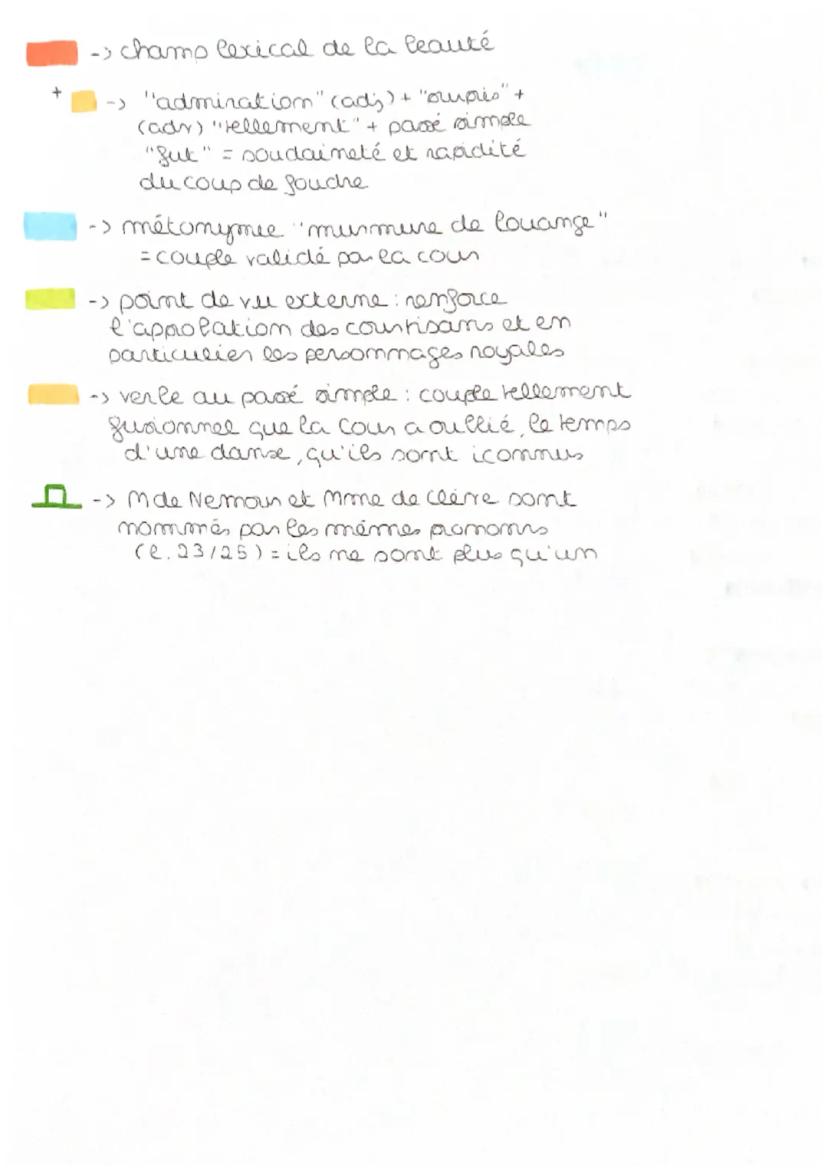 -> champ lexical de la beauté
+ -> "admiration" (adj) + "surpris" +
(adv) "tellement" + passé simple
"fut" = soudaineté et rapidité
du coup de foudre
-> métonymie "murmure de louange"
= couple validé par la cour
-> point de vu externe : renforce
l'approbation des courtisans et en
particulier les personnages royales
-> verbe au passé simple : couple tellement
fusionnel que la cour a oublié, le temps
d'une danse, qu'ils sont iconnus
-> M de Nemour et Mme de Clève sont
nommés par les mêmes pronoms
(l. 23/25) = ils ne sont plus qu'un